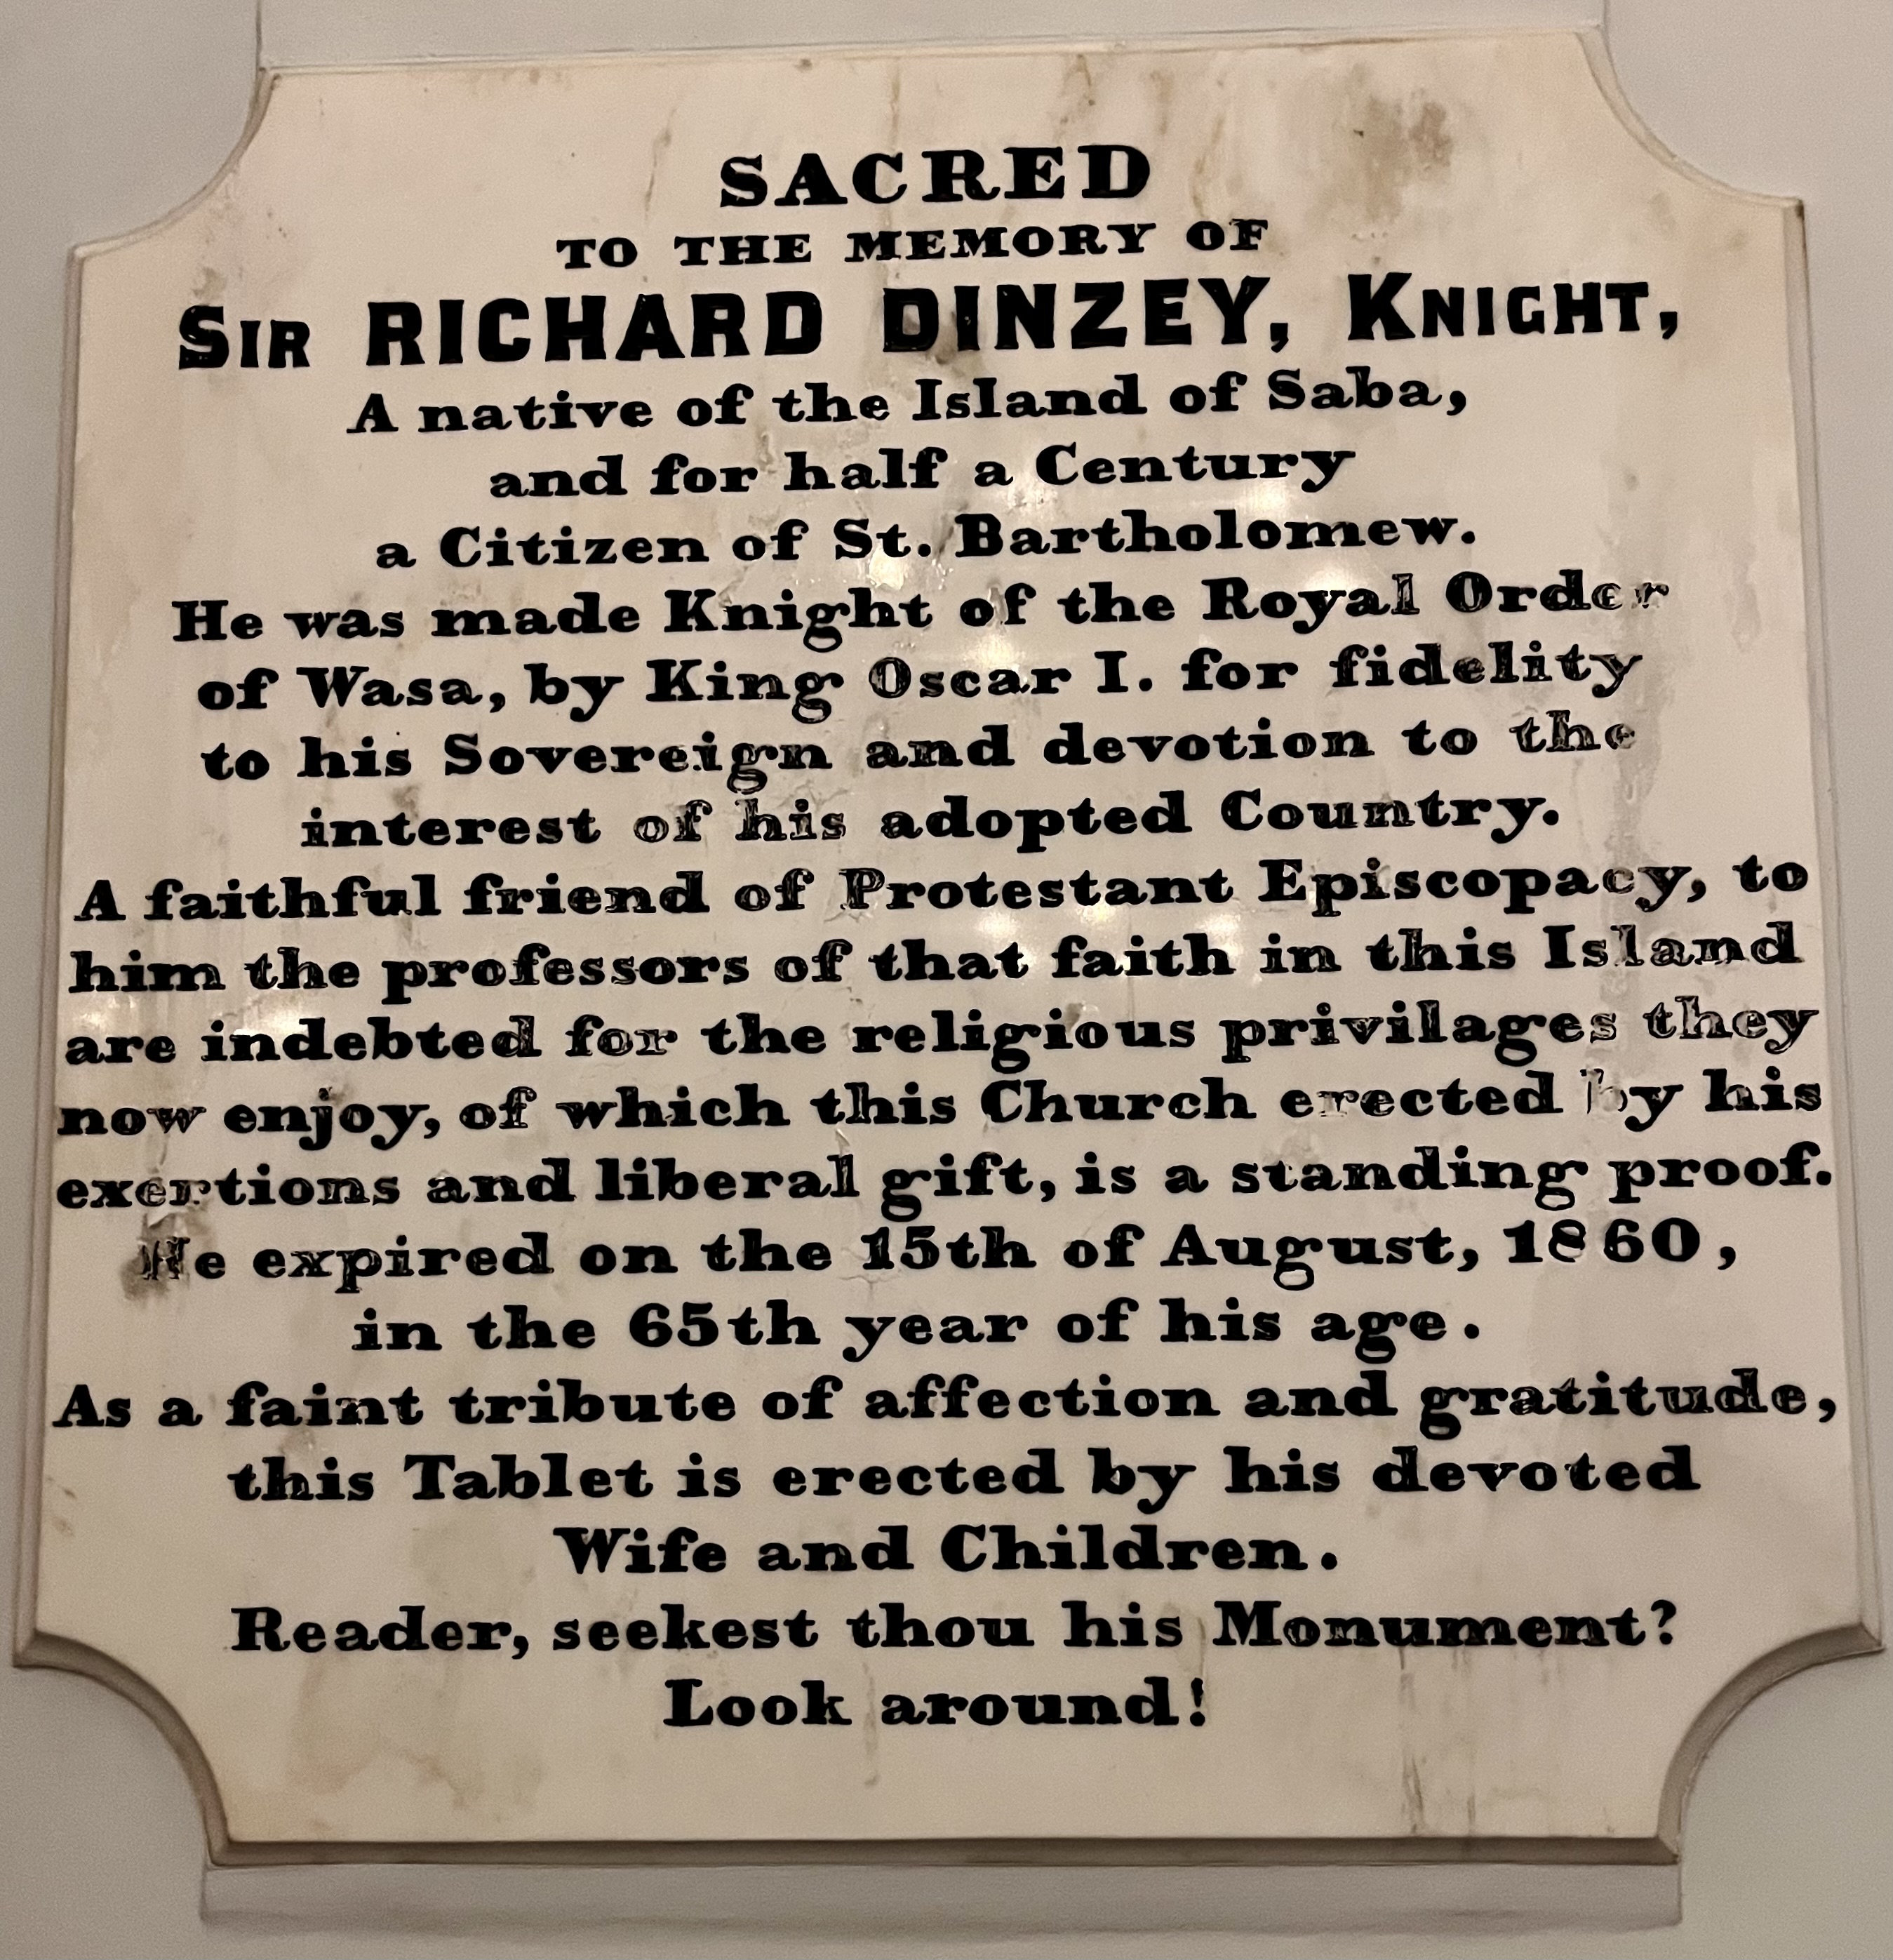 SACRED
TO THE MEMORY OF
SIR RICHARD DINZEY, KNIGHT,
A native of the Island of Saba,
and for half a Century
a Citizen of St. Bartholomew.
He was made Knight of the Royal Order
of Wasa, by King Oscar I. for fidelity
to his Sovereign and devotion to the
interest of his adopted Country.
A faithful friend of Protestant Episcopacy, to
him the professors of that faith in this Island
are indebted for the religious privilages they
now enjoy, of which this Church erected by his
exertions and liberal gift, is a standing proof.
He expired on the 15th of August, 1860,
in the 65th year of his age.
As a faint tribute of affection and gratitude,
this Tablet is erected by his devoted
Wife and Children.
Reader, seekest thou his Monument?
Look around!